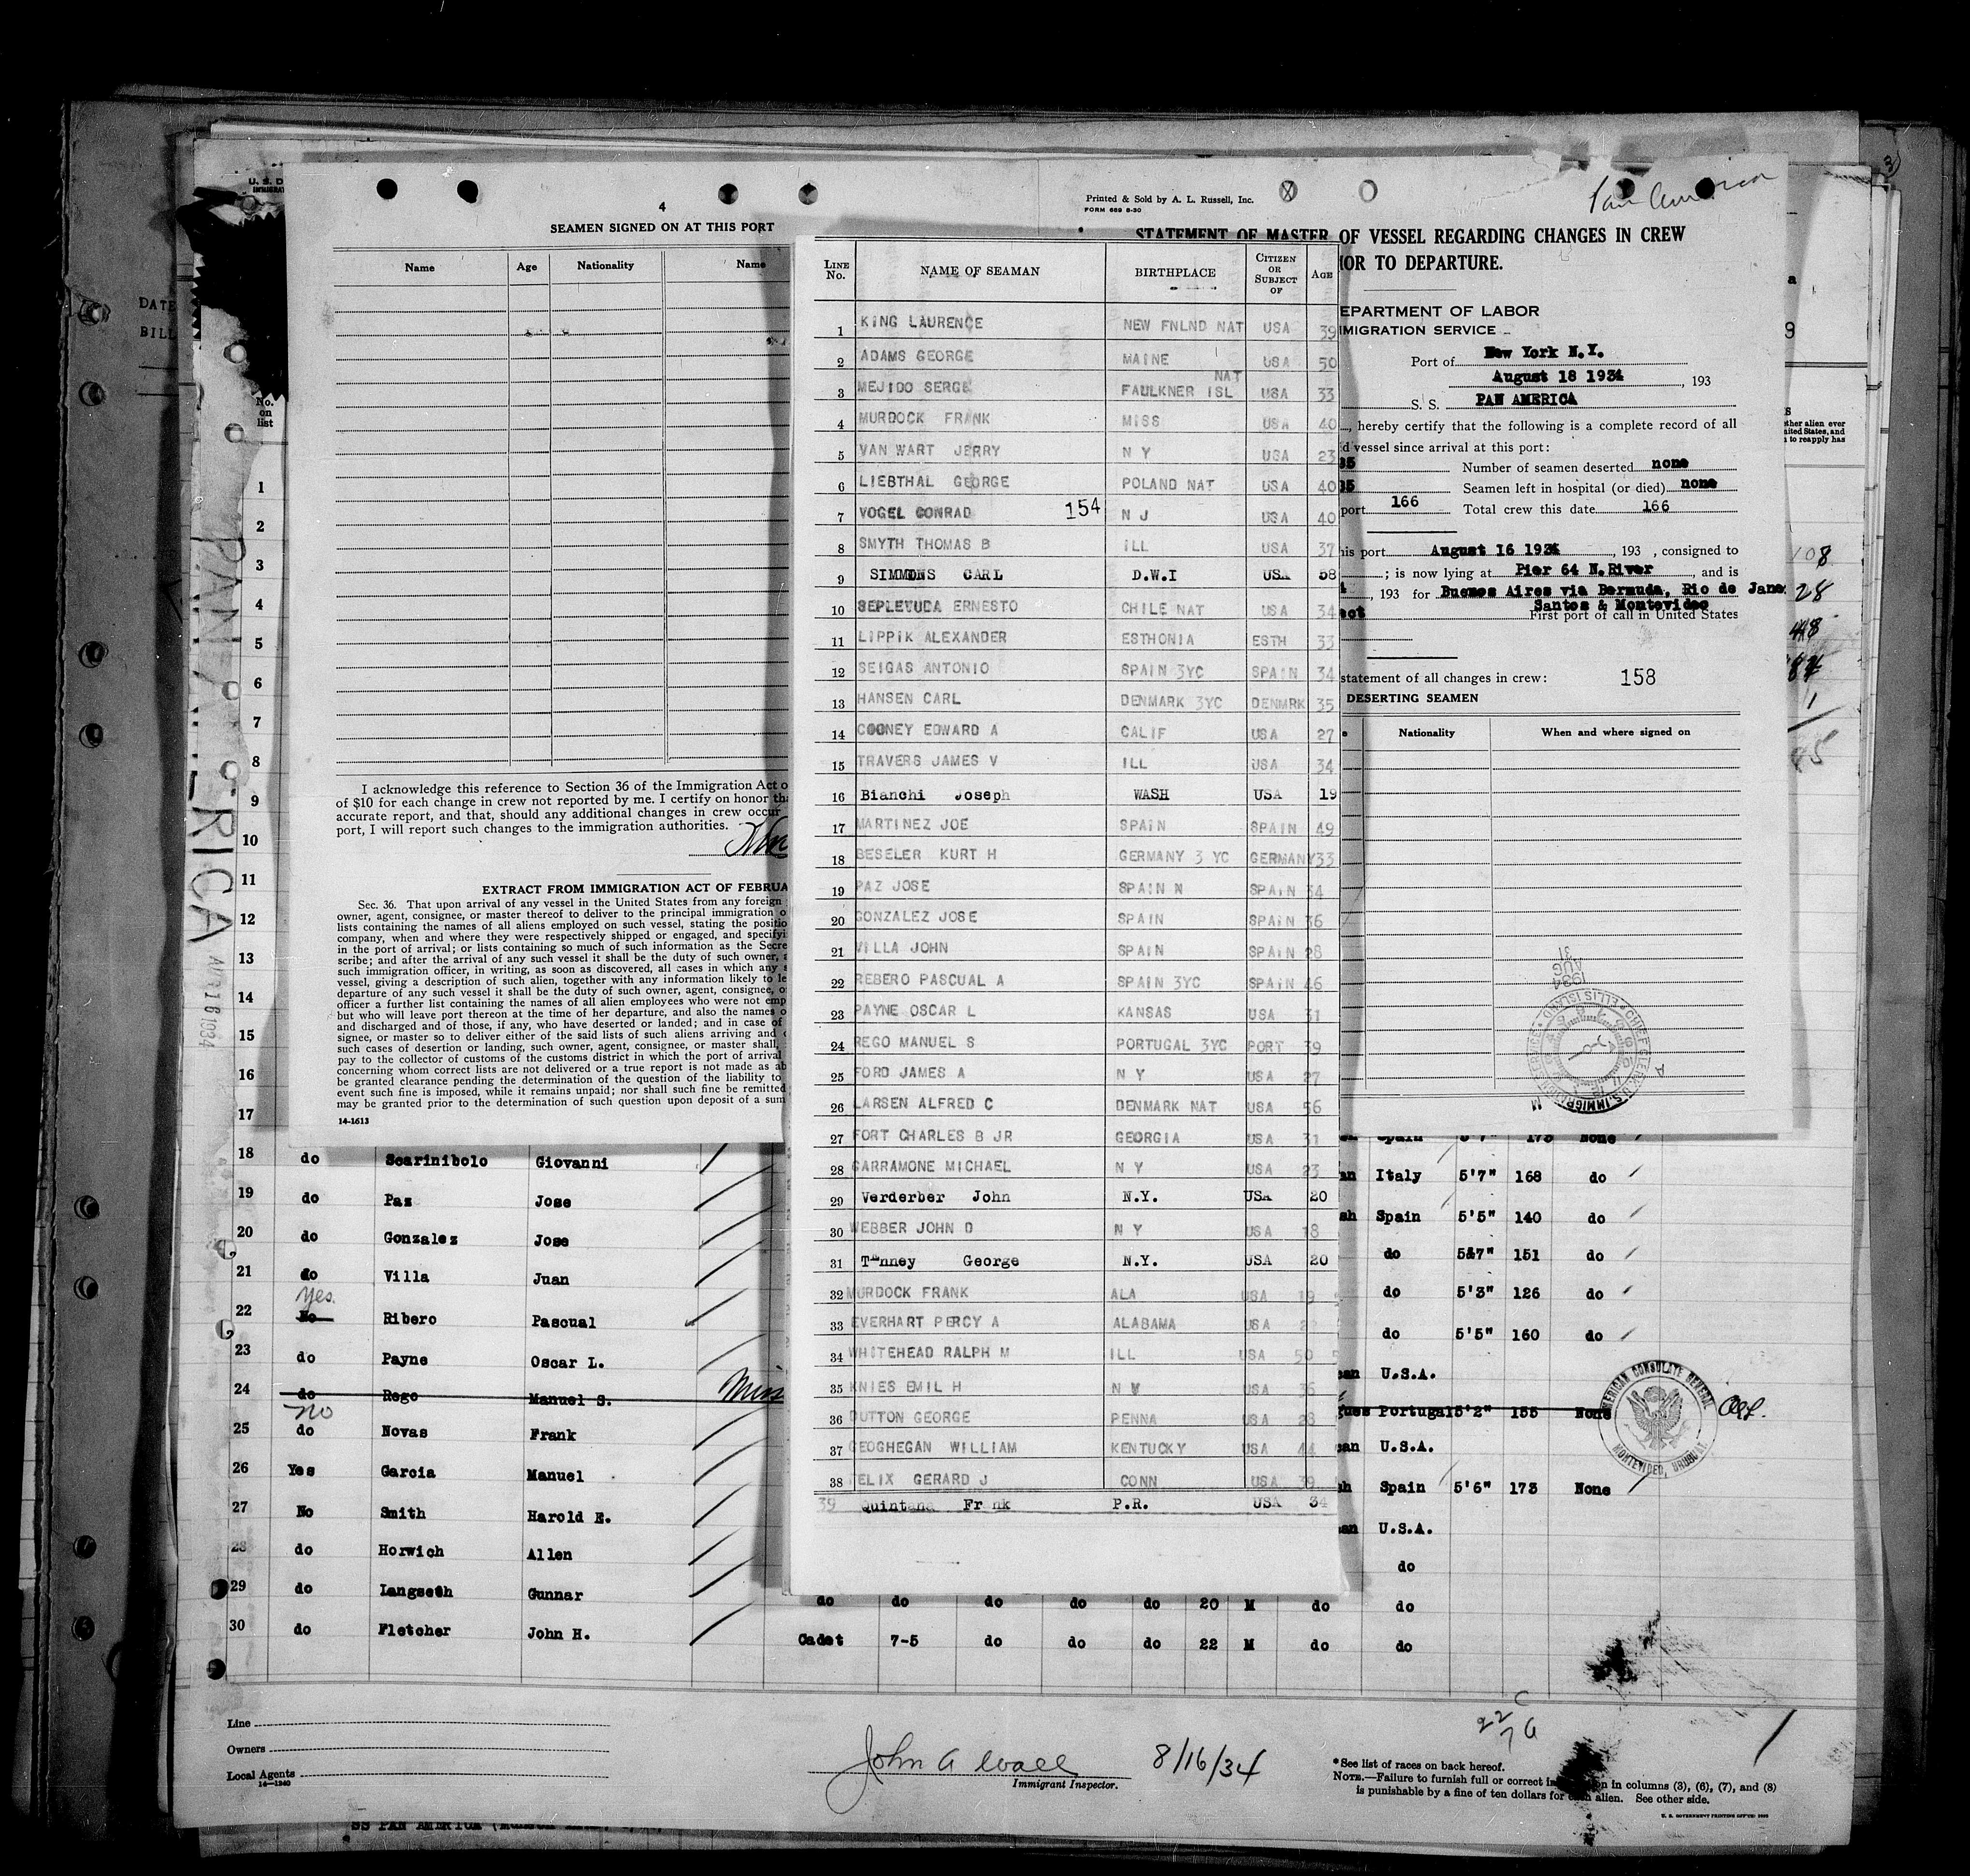 U. S. D
IMMIGRA
DATE
BILL
4
SEAMEN SIGNED ON AT THIS PORT
Name Age Nationality Name
I acknowledge this reference to Section 36 of the Immigration Act o
of $10 for each change in crew not reported by me. I certify on honor th
accurate report, and that, should any additional changes in crew occur
port, I will report such changes to the immigration authorities.
EXTRACT FROM IMMIGRATION ACT OF FEBRUA
Sec. 36. That upon arrival of any vessel in the United States from any foreign
owner, agent, consignee, or master thereof to deliver to the principal immigration o
lists containing the names of all aliens employed on such vessel, stating the positio
company, when and where they were respectively shipped or engaged, and specifyi
in the port of arrival; or lists containing so much of such information as the Secre
scribe; and after the arrival of any such vessel it shall be the duty of such owner, a
such immigration officer, in writing, as soon as discovered, all cases in which any
vessel, giving a description of such alien, together with any information likely to le
departure of any such vessel it shall be the duty of such owner, agent, consignee, o
officer a further list containing the names of all alien employees who were not emp
but who will leave port thereon at the time of her departure, and also the names o
and discharged and of those, if any, who have deserted or landed; and in case of
signee, or master so to deliver either of the said lists of such aliens arriving and
such cases of desertion or landing, such owner, agent, consignee, or master shall,
pay to the collector of customs of the customs district in which the port of arrival
concerning whom correct lists are not delivered or a true report is not made as ab
be granted clearance pending the determination of the question of the liability to
event such fine is imposed, while it remains unpaid; nor shall such fine be remitted
may be granted prior to the determination of such question upon deposit of a sum
14-1613
Printed & Sold by A. L. Russell, Inc.
FORM 669 8-30
Pan American
STATEMENT OF MASTER OF VESSEL REGARDING CHANGES IN CREW
IOR TO DEPARTURE.
EPARTMENT OF LABOR
MIGRATION SERVICE
Port of New York N.Y.
August 18 1934, 193
S. S. PAN AMERICA
, hereby certify that the following is a complete record of all
d vessel since arrival at this port:
Number of seamen deserted none
Seamen left in hospital (or died) none
port 166 Total crew this date 166
is port August 16 1934, 193 , consigned to
; is now lying at Pier 64 N.River, and is
, 193 for Buenos Aires via Bermuda, Rio de Jane
Santos & Montevideo
First port of call in United States
statement of all changes in crew: 158
DESERTING SEAMEN
Nationality When and where signed on
LINE No. NAME OF SEAMAN BIRTHPLACE CITIZEN OR SUBJECT OF AGE
1 KING LAURENCE NEW FNLND NAT USA 39
2 ADAMS GEORGE MAINE USA 50
3 MEJIDO SERGE FAULKNER ISL NAT USA 33
4 MURDOCK FRANK MISS USA 40
5 VAN WART JERRY N Y USA 23
6 LIEBTHAL GEORGE POLAND NAT USA 40
7 VOGEL CONRAD 154 N J USA 40
8 SMYTH THOMAS B ILL USA 37
9 SIMMONS CARL D.W.I USA 58
10 SEPLEVUDA ERNESTO CHILE NAT USA 34
11 LIPPIK ALEXANDER ESTHONIA ESTH 33
12 SEIGAS ANTONIO SPAIN 3YC SPAIN 34
13 HANSEN CARL DENMARK 3YC DENMRK 35
14 COONEY EDWARD A CALIF USA 27
15 TRAVERS JAMES V ILL USA 34
16 Bianchi Joseph WASH USA 19
17 MARTINEZ JOE SPAIN SPAIN 49
18 BESELER KURT H GERMANY 3 YC GERMANY 33
19 PAZ JOSE SPAIN N SPAIN 34
20 GONZALEZ JOSE SPAIN SPAIN 36
21 VILLA JOHN SPAIN SPAIN 28
22 REBERO PASCUAL A SPAIN 3YC SPAIN 46
23 PAYNE OSCAR L KANSAS USA 31
24 REGO MANUEL S PORTUGAL 3YC PORT 39
25 FORD JAMES A N Y USA 27
26 LARSEN ALFRED C DENMARK NAT USA 56
27 FORT CHARLES B JR GEORGIA USA 31
28 GARRAMONE MICHAEL N Y USA 23
29 Verderber John N.Y. USA 20
30 WEBBER JOHN D N Y USA 18
31 T nney George N.Y. USA 20
32 MURDOCK FRANK ALA USA 19
33 EVERHART PERCY A ALABAMA USA
34 WHITEHEAD RALPH M ILL USA 50
35 KNIES EMIL H USA 36
36 DUTTON GEORGE PENNA USA 28
37 GEOGHEGAN WILLIAM KENTUCKY USA 44
38 FELIX GERARD J CONN USA 39
39 Quintana Fr nk P.R. USA 34
PAN AMERICA
AUG 16 1934
No. on list
1
2
3
4
5
6
7
8
9
10
11
12
13
14
15
16
17
18 do Scarinibolo Giovanni Italy 5'7" 168 do
19 do Paz Jose Spain 5'5" 140 do
20 do Gonzalez Jose do 5&7" 151 do
21 do Villa Juan do 5'3" 126 do
yes
22 No Ribero Pascual do 5'5" 160 do
23 do Payne Oscar L. U.S.A.
24 do Rego Manuel S. Portugal 5'2" 155 None
no
25 do Novas Frank U.S.A.
26 Yes Garcia Manuel Spain 5'6" 173 None
27 No Smith Harold E. U.S.A.
28 do Horwich Allen do
29 do Langseth Gunnar do do do do do 20 M do do
30 do Fletcher John H. Cadet 7-5 do do do 22 M do do
AMERICAN CONSULATE GENERAL
MONTEVIDEO, URUGUAY
Line
Owners
Local Agents
14-1240
John A Wall 8/16/34
Immigrant Inspector.
*See list of races on back hereof.
NOTE.—Failure to furnish full or correct in on in columns (3), (6), (7), and (8)
is punishable by a fine of ten dollars for each alien. See other side.
SS PAN AMERICA